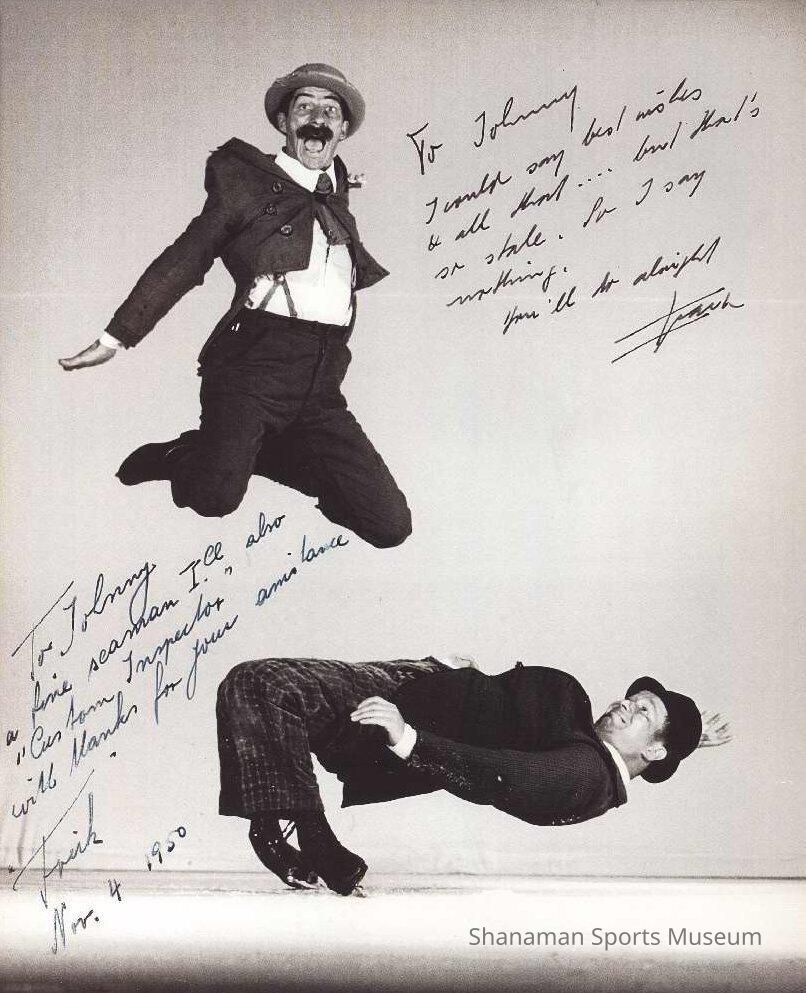 To Johnny
I could say best wishes
& all that .... but that's
so stale. So I say
nothing.
You'll do alright
Frack
To Johnny
a fine seaman I'll also
"Custom Inspector"
with thanks for your assistance
"Frick"
Nov. 4 1950
Shanaman Sports Museum